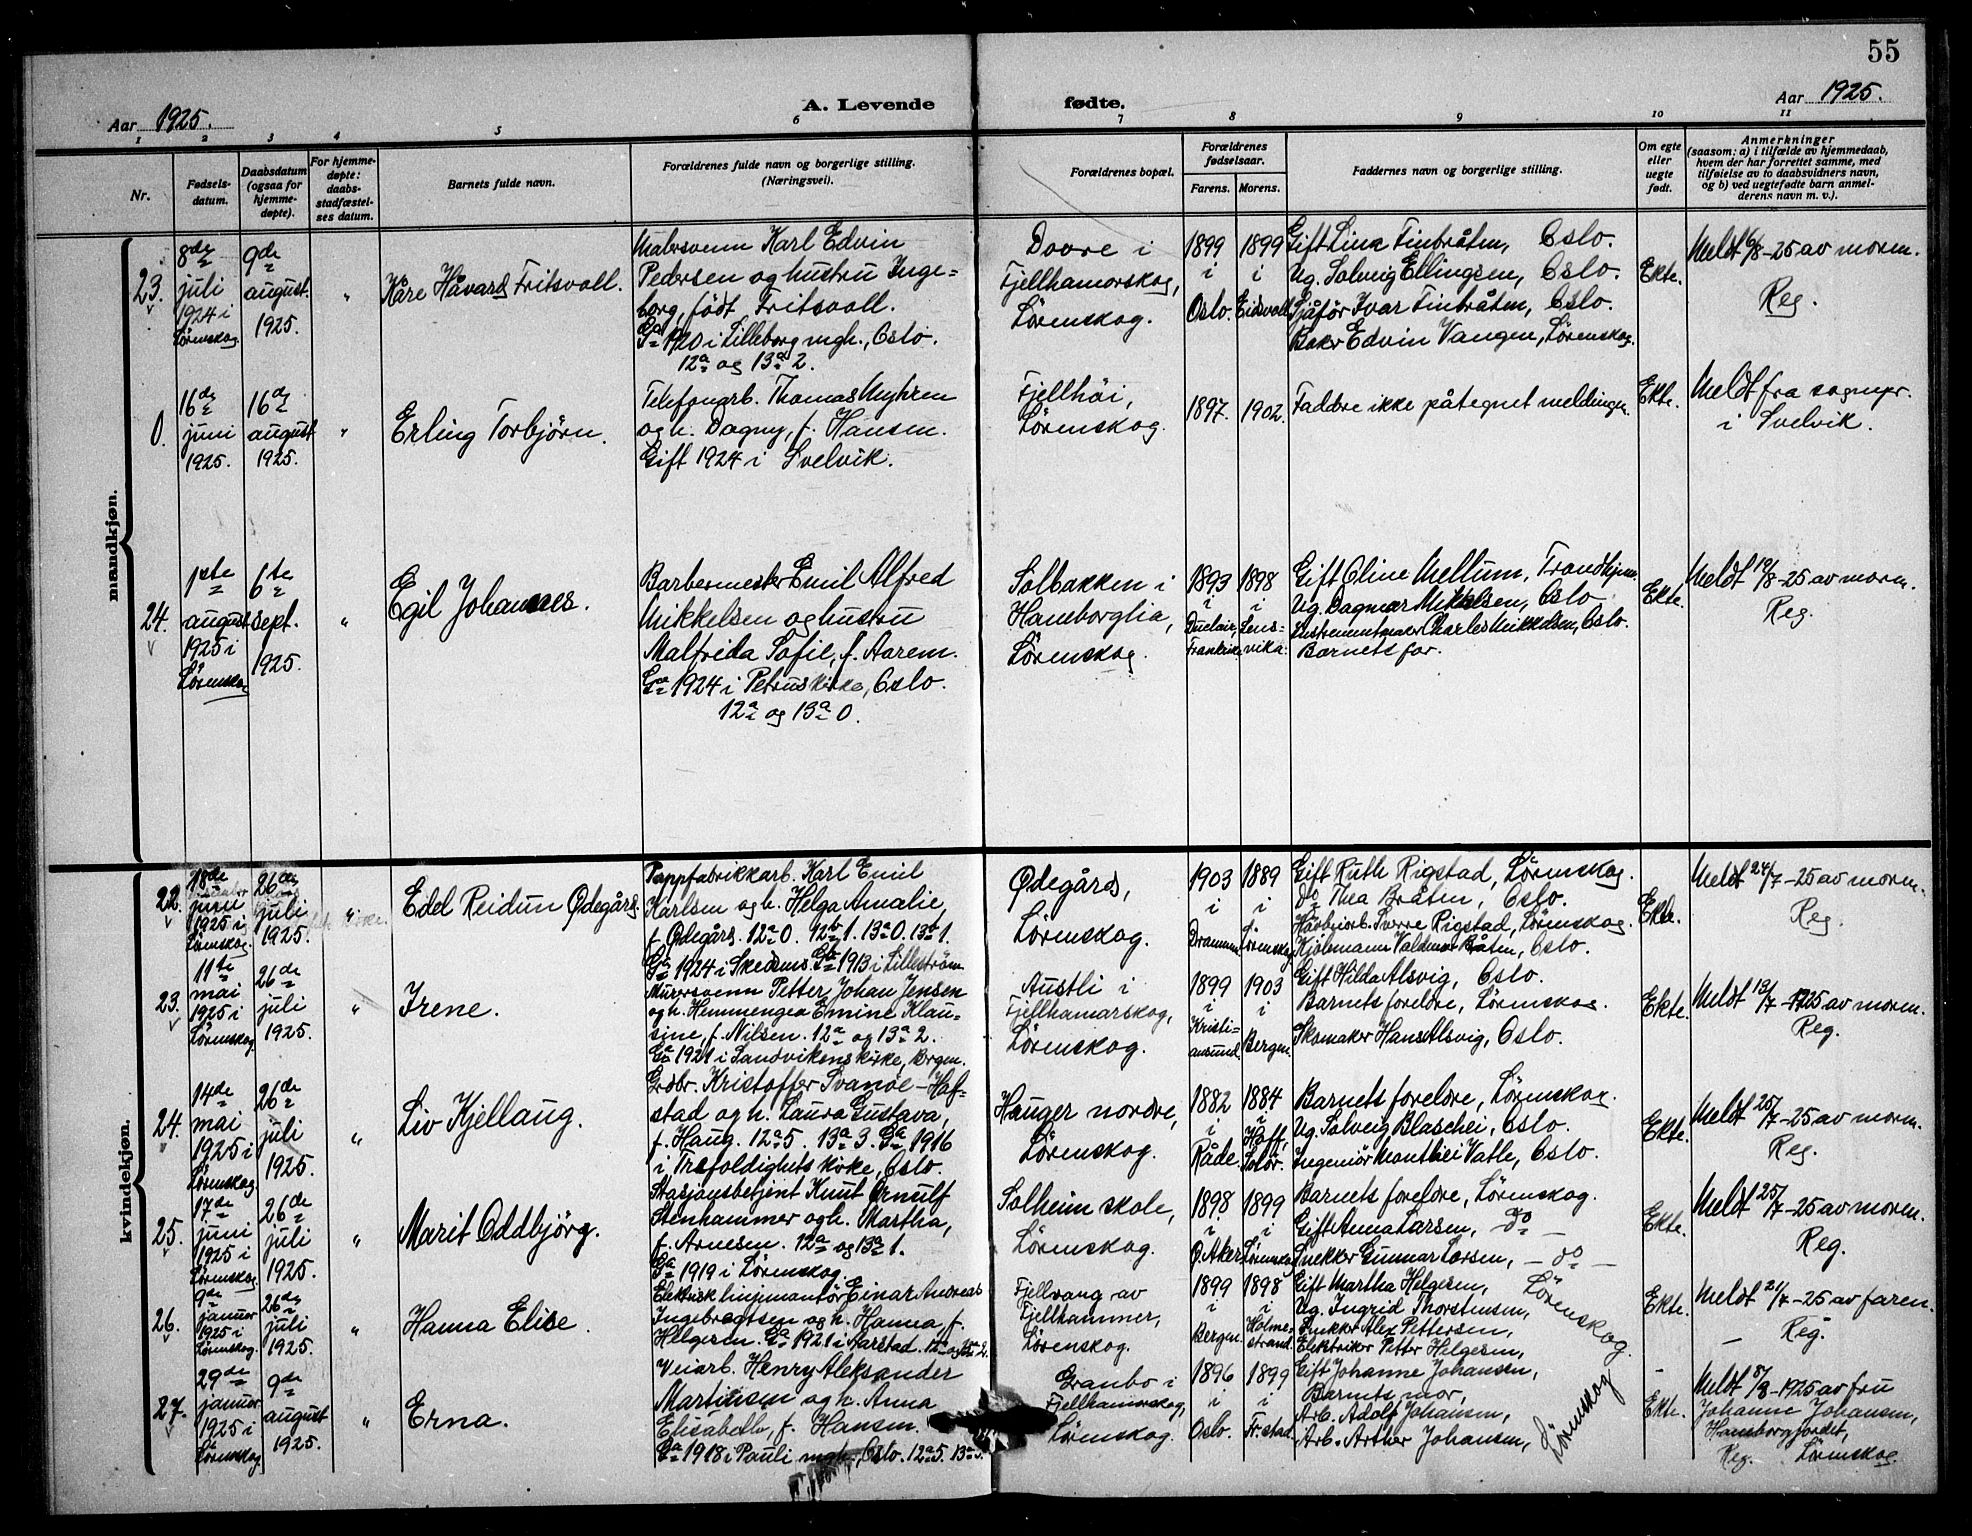 55
Aar 1925.
A. Levende fødte.
Aar 1925.
1 2 3 4 5 6 7 8 9 10 11
Nr.
Fødsels-
datum.
Daabsdatum
(ogsaa for
hjemme-
døpte).
For hjemme-
døpte:
daabs-
stadfæstel-
ses datum.
Barnets fulde navn.
Forældrenes fulde navn og borgerlige stilling.
(Næringsvei).
Forældrenes bopæl.
Forældrenes
fødselsaar.
Farens. Morens.
Faddernes navn og borgerlige stilling.
Om egte
eller
uegte
født.
Anmerkninger
(saasom: a) i tilfælde av hjemmedaab,
hvem der har forrettet samme, med
tilføielse av to daabsvidners navn,
og b) ved uegtefødte barn anmel-
derens navn m. v.).
mandkjøn.
23.
8de
juli
1924 i
Lørenskog
9de
august
1925.
"
Kåre Håvard Fritsvoll.
Malersvenn Karl Edvin
Pedersen og hustru Inge=
borg, født Fritsvoll.
Ga 1920 i Lilleborg mgh., Oslo.
12a og 13a 2.
Dovre i
Fjellhamarskog,
Lørenskog.
1899
i
Oslo.
1899
i
Eidsvoll
Gift Lina Finbråten, Oslo.
Ug. Solveig Ellingsen, Oslo.
Sjåfør Ivar Finbråten, Oslo.
Baker Edvin Vangen, Lørenskog.
Ekte.
Meldt 6/8-25 av moren.
Reg.
0.
16de
juni
1925.
16de
august
1925.
"
Erling Torbjørn.
Telefonarb. Thomas Myhren
og h. Dagny, f. Hansen.
Gift 1924 i Svelvik.
Fjellhöi,
Lørenskog.
1897. 1902.
Faddere ikke påtegnet meldingen.
Ekte.
Meldt fra sognepr.
i Svelvik.
24.
1ste
august
1925 i
Lørenskog
6te
sept.
1925.
"
Egil Johannes.
Barbermester Emil Alfred
Mikkelsen og hustru
Malfrida Sofie, f. Aarem.
Ga 1924 i Petruskirke, Oslo.
12a og 13a 0.
Solbakken i
Hamborglia,
Lørenskog.
1893
i
Duclair,
Frankrike
1898
i
Lens-
vika.
Gift Oline Mellum, Trondhjem.
Ug. Dagmar Mikkelsen, Oslo
Instrumentmaker Charles Mikkelsen, Oslo.
Barnets far.
Ekte.
Meldt 19/8-25 av moren.
Reg.
kvindekjøn.
22.
18de
juni
1925 i
Lørenskog
26de
juli
1925.
"
Edel Reidun Ødegård.
Pappfabrikkarb. Karl Emil
Karlsen og h. Helga Amalie,
f. Ødegård. 12a 0. 12b 1. 13a 0. 13b 1.
Ga 1924 i Skedsmo. Ga 1913 i Lillestrøm
Ødegård,
Lørenskog.
1903
i
Drammen
1889
i
Lørenskog
Gift Ruth Rigstad, Lørenskog.
Do Thea Bråten, Oslo.
Sverre Rigstad, Lørenskog
Kjøbmann Valdemar Bråten, Oslo.
Ekte.
Meldt 24/7-25 av moren.
Reg.
23.
11te
mai
1925 i
Lørenskog
26de
juli
1925.
"
Irene.
Murersvenn Petter Johan Jensen
og h. Hemmengea Emine Klau-
sine, f. Nilsen. 12a og 13a 2.
Ga 1921 i Sandvikens kirke, Bergen.
Austli i
Fjellhamarskog,
Lørenskog.
1899
i
Kristi-
ansund.
1903
i
Bergen.
Gift Hilda Alsvig, Oslo.
Barnets foreldre, Lørenskog.
Skomaker Hans Alsvig, Oslo.
Ekte.
Meldt 13/7-1925 av moren.
Reg.
24.
14de
mai
1925 i
Lørenskog
26de
juli
1925.
"
Liv Kjellaug.
Grdbr. Kristoffer Svanøe-Haf-
stad og h. Laura Gustava,
f. Haug. 12a 5. 13a 3. Ga 1916
i Trefoldighets kirke, Oslo.
Hauger nordre,
Lørenskog.
1882
i
Råde.
1884
i
Hoff,
Solør.
Barnets foreldre, Lørenskog.
Ug. Solveig Blaschei, Oslo.
Ingeniør Vatle, Oslo.
Ekte.
Meldt 25/7-25 av moren.
Reg.
25.
17de
juni
1925 i
Lørenskog
26de
juli
1925.
"
Marit Oddbjörg.
Stasjonsbetjent Knut Ørnulf
Stenhammer og h. Martha,
f. Arnesen. 12a og 13a 1.
Ga 1919 i Lørenskog
Solheim skole,
Lørenskog.
1898
i
Ø. Aker
1899
i
Lørenskog
Barnets foreldre, Lørenskog.
Gift Anna Larsen, - do -
Snekker Gunnar Larsen, - do -
Ekte.
Meldt 25/7-25 av moren.
Reg.
26.
9de
januar
1925 i
Lørenskog.
26de
juli
1925.
"
Hanna Elise.
Elektrisk linjemontør Einar Andreas
Ingebregtsen og h. Hanna, f.
Helgesen. Ga 1921 i Aarstad. 12a og 13a 2.
Fjellvang av
Fjellhammer,
Lørenskog.
1899
i
Bergen.
1898
i
Holme-
strand.
Gift Martha Helgesen,
Ug. Ingrid Thorstensen,
Snekker Alex Pettersen,
Elektriker Petter Helgesen,
Lørenskog.
Ekte.
Meldt 21/7-25 av faren.
- Reg.
27.
29de
januar
1925 i
Lørenskog
9de
august
1925.
"
Erna.
Veiarb. Henry Aleksander
Martinsen og h. Anna
Elisabeth, f. Hansen.
Ga 1918 i Pauli mgh., Oslo. 12a 5. 13a 3.
Granbo i
Fjellhamarskog,
Lørenskog.
1896
i
Oslo.
1899
i
Fr.stad.
Gift Johanne Johansen,
Barnets mor,
Arb. Adolf Johansen,
Arb. Arthur Johansen,
Lørenskog
Ekte.
Meldt 8/8-1925 av fru
Johanne Johansen,
Hamborgjordet,
Reg. Lørenskog